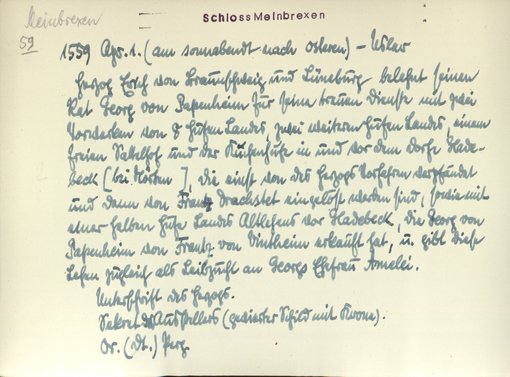 Meinbrexen
59
Schloss Meinbrexen
1559 Apr. 1. (am sonnabendt nach ostern) – Uslar
Herzog Erich von Braunschweig und Lüneburg belehnt seinen
Rat Georg von Papenheim für seine treuen Dienste mit zwei
Vorwerken von 8 Hufen Landes, zwei weitern Hufen Landes, einem
freien Sattelhof und der in und vor dem Dorfe Lade-
beck [bei Nörten], die einst von des Herzogs Vorfahren verpfändet
und dann von Frantz Drachstet eingelöst worden sind, sowie mit
einer halben Hufe Landes Altlehens vor Ladebeck, die Georg von
Papenheim von Frantz von erkauft hat, u. gibt diese
Lehen zugleich als Leibzucht an Georgs Ehefrau Amelei.
Unterschrift des Herzogs.
Sekret des Ausstellers (gevierter Schild mit Krone).
Or. (dt.) Perg.